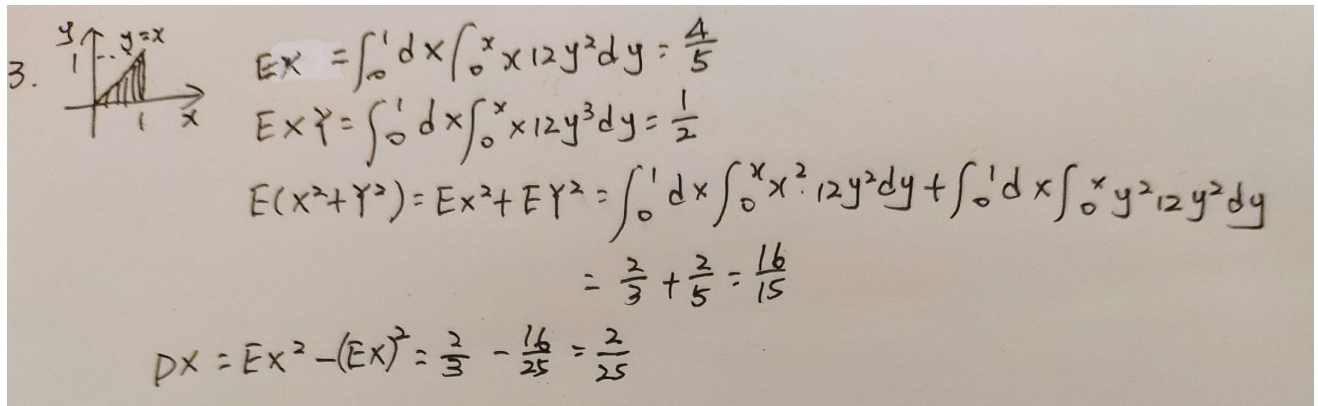 3.
y
1
y=x
1
x
EX = ∫₀¹ dx ∫₀ˣ x12y²dy = 4/5
EXY = ∫₀¹ dx ∫₀ˣ x12y³dy = 1/2
E(X²+Y²) = EX²+EY² = ∫₀¹ dx ∫₀ˣ x²·12y²dy + ∫₀¹ dx ∫₀ˣ y²12y²dy
= 2/3 + 2/5 = 16/15
DX = EX² - (EX)² = 2/3 - 16/25 = 2/25